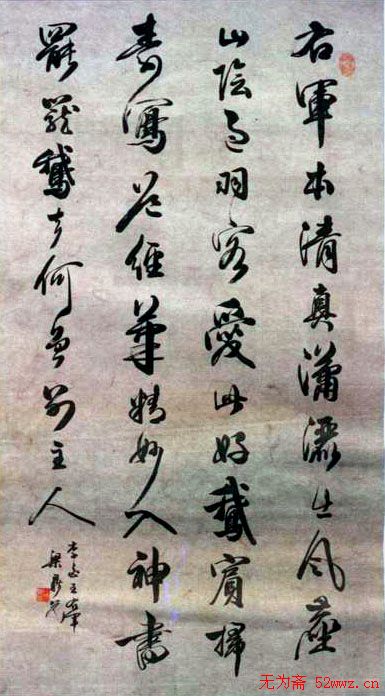 右軍本清真瀟灑出風塵
山陰過羽客愛此好鵝賓掃
素寫道經筆精妙入神書
罷籠鵝去何曾別主人
李白王右軍
梁
无为斋 52wwz.cn